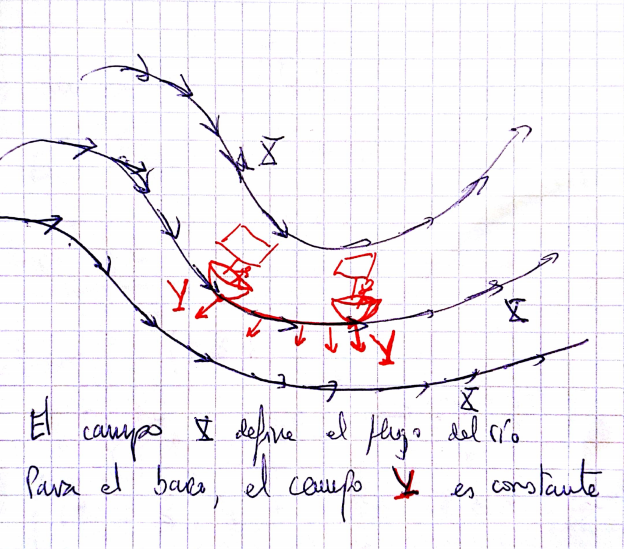 X
Y
Y
X
X
El campo X define el flujo del río
Para el barco, el campo Y es constante